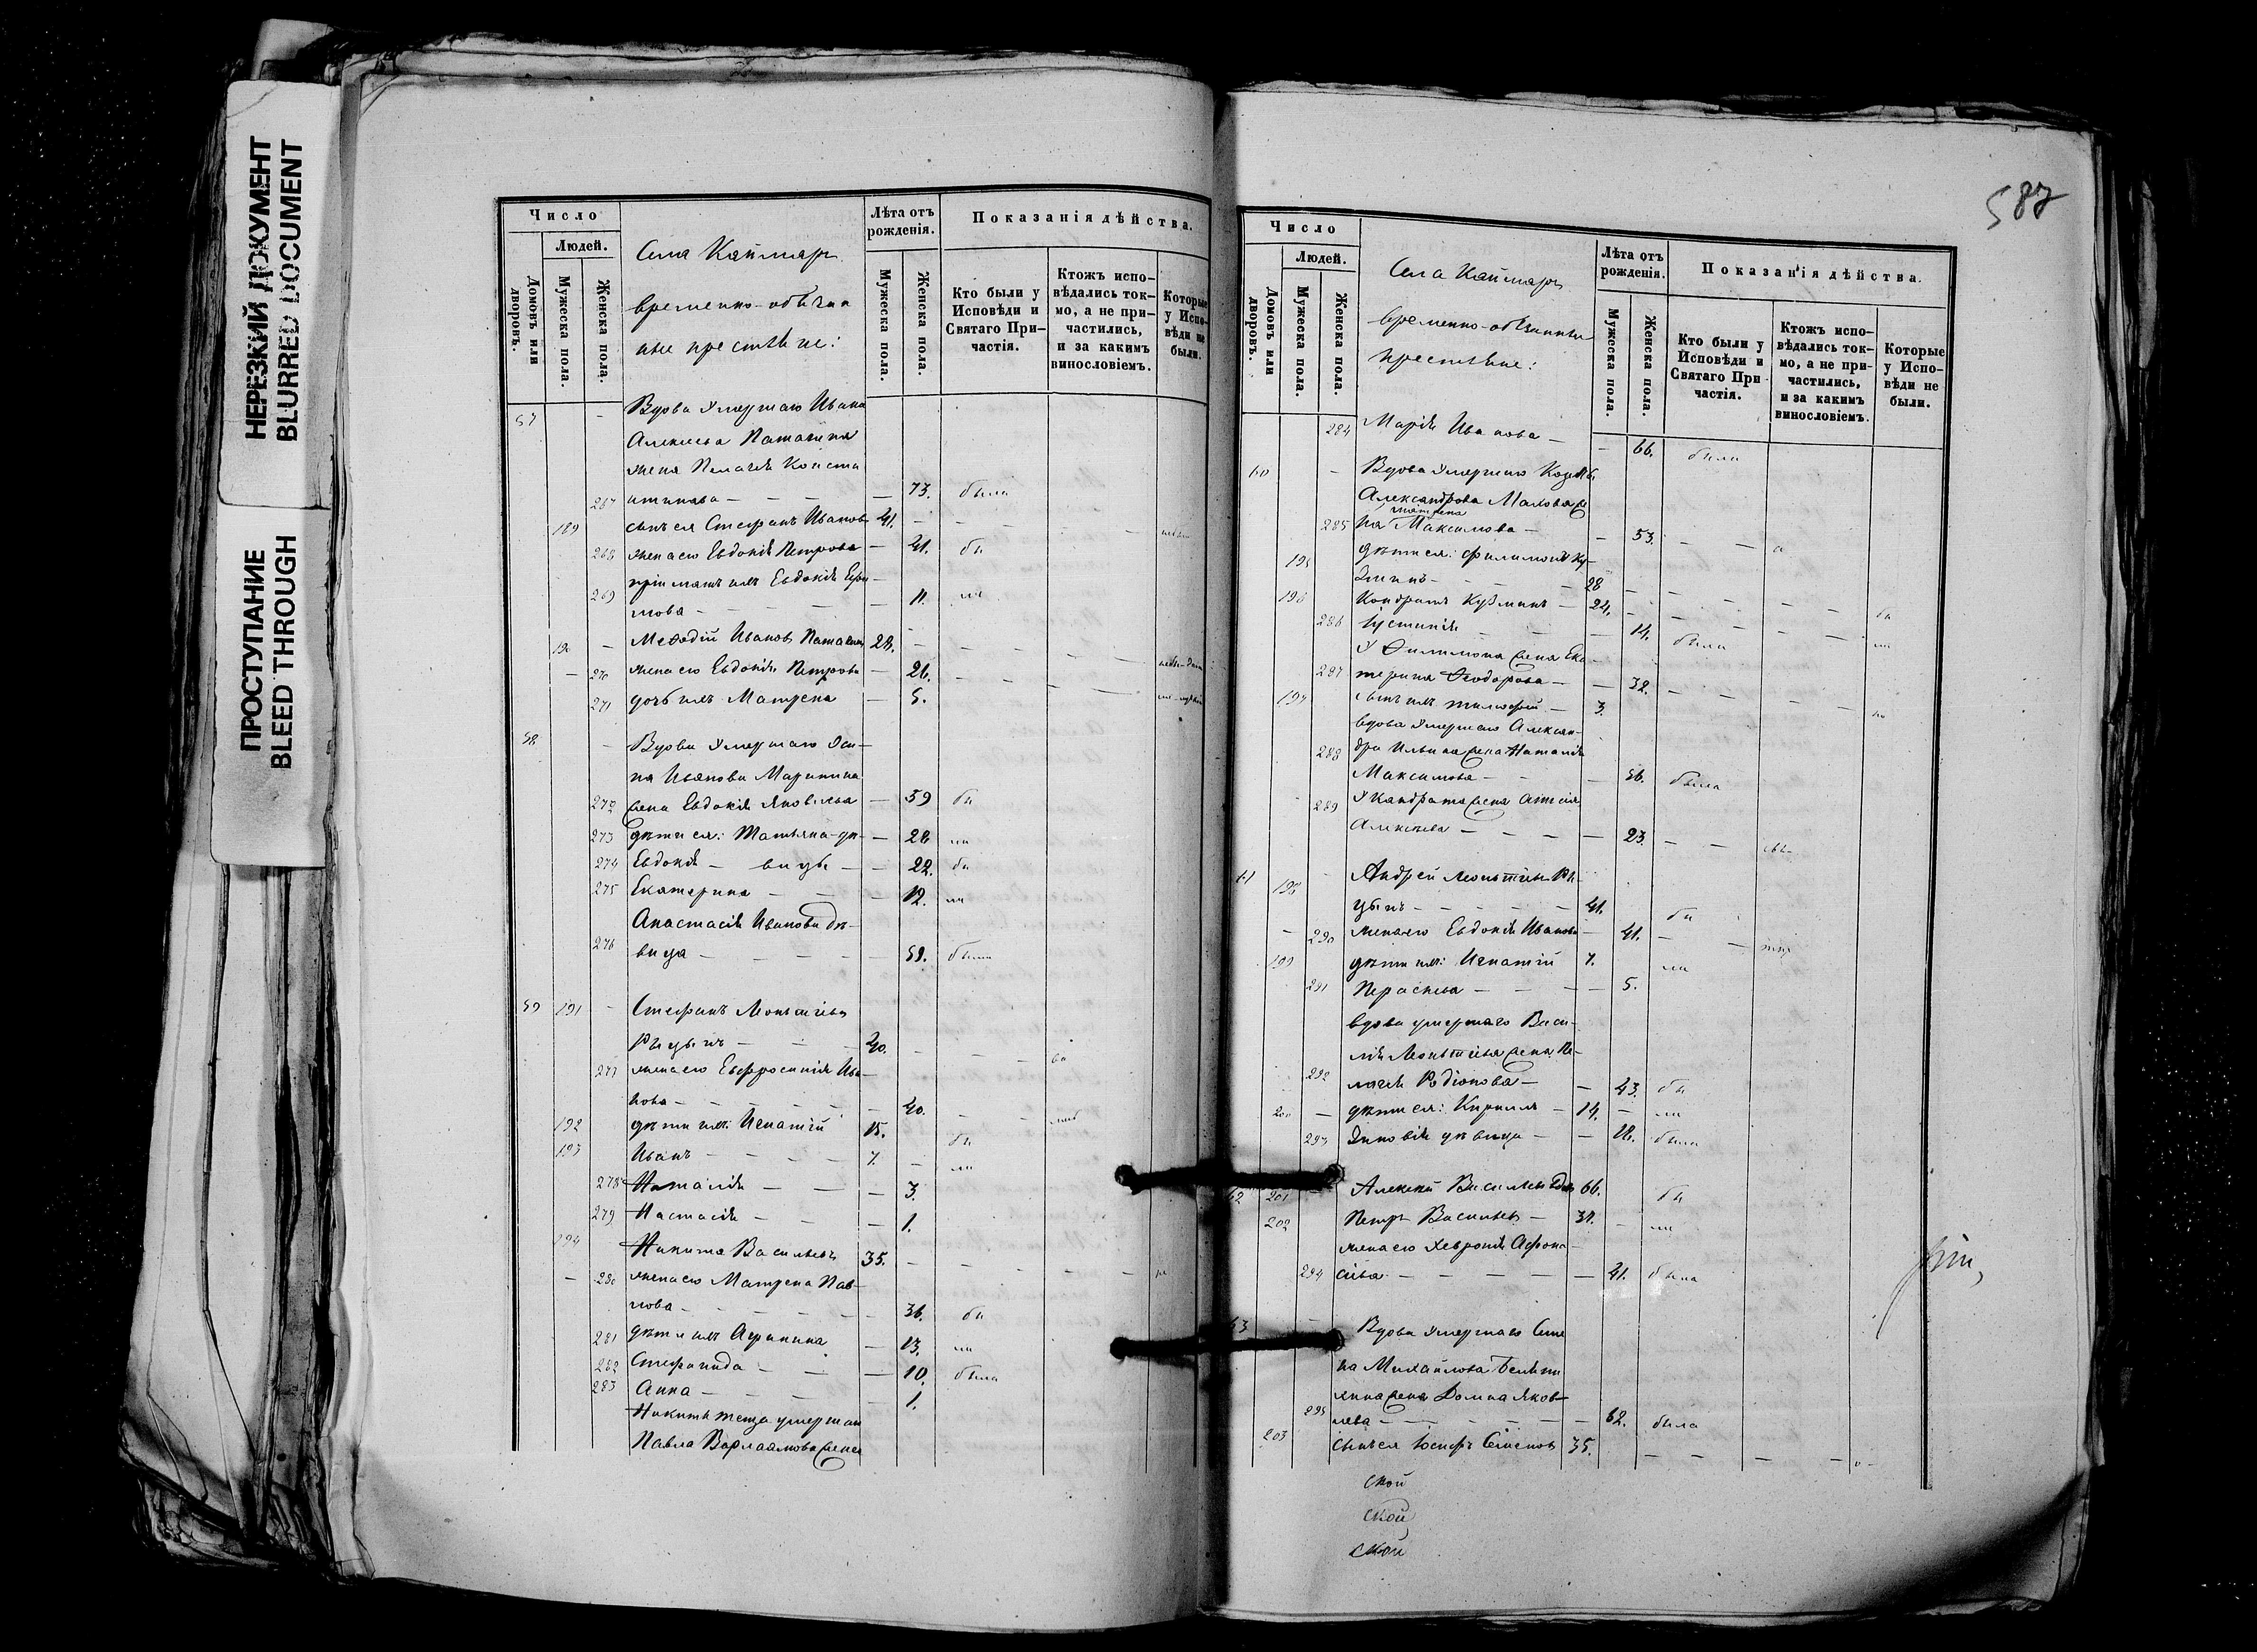 НЕРЕЗКИЙ ДОКУМЕНТ
BLURRED DOCUMENT
ПРОСТУПАНИЕ
BLEED THROUGH
Число
Людей.
Домовъ или дворовъ.
Мужеска пола.
Женска пола.
Села Каймаръ
временно-обязан
ные крестьяне:
Лѣта отъ рожденія.
Мужеска пола.
Женска пола.
Показанія дѣйства.
Кто были у Исповѣди и Святаго Причастія.
Ктожъ исповѣдались токмо, а не причастились, и за какимъ винословіемъ.
Которые у Исповѣди не были.
57 – Вдова умершаго Ивана
Алексѣева
жена Пелагія Конста
267 нтинова – – 73. была
189 сынъ ея Стефанъ Ивановъ 41.
268 жена его Евдокія Петрова – 41. бы
пріимышъ ихъ Евдокія Ефи
269 мова – – 11. ли
190 – Меѳодій Ивановъ 28.
270 жена его Евдокія Петрова – 26.
271 дочь ихъ Матрена – 5.
58 – Вдова умершаго Оси–
па Иванова Маринина
272 жена Евдокія Яковлева – 59 бы
273 дѣти ея: Татьяна дѣ– – 26 ли
274 Евдокія – вицы – 22. бы
275 Екатерина – – 12. ли
Анастасія Иванова дѣ–
276 вица – – – 59. была
59 191 – Стефанъ Леонтіевъ
Рыцынъ – – 40.
277 жена его Евфросинія Ива–
нова – – – 40.
192 дѣти ихъ: Игнатій 15. бы
193 Иванъ – – – 7. ли
278 Наталія – – – 3.
279 Настасія – – – 1.
194 Никита Васильевъ 35.
280 жена его Матрена Пав–
лова – – – 36. бы
281 дѣти ихъ Агрипина – 13. ли
282 Стефанида – – 10. была
283 Анна – – – 1.
Никиты теща умершаго
Павла Варлаамова жена
587
Число
Людей.
Домовъ или дворовъ.
Мужеска пола.
Женска пола.
Села Каймаръ
временно-обязанные
крестьяне:
Лѣта отъ рожденія.
Мужеска пола.
Женска пола.
Показанія дѣйства.
Кто были у Исповѣди и Святаго Причастія.
Ктожъ исповѣдались токмо, а не причастились, и за какимъ винословіемъ.
Которые у Исповѣди не были.
284 Марія Иванова – – 66. была
60 – Вдова умершаго Козьмы
Александрова
285 Максимова – – 53.
195 дѣти ея: Филимонъ Ку–
зминъ – – 28
196 Кондратъ Кузминъ – 24.
286 Устинія – – 14. была
У Филимона жена Ека–
287 терина Ѳеодорова – – 32.
197 сынъ ихъ Тимофей – 3.
вдова умершаго Алексан–
288 дра Ильина жена Наталія
Максимова – – 56. была
289 У Кандрата жена
Алексѣева – – – 23.
61 198 Андрей Леонтіевъ Ры–
цынъ – – – 41. бы
290 жена его Евдокія Иванова – 41.
199 дѣти ихъ: Игнатій 7. ли
291 Параскева – – – 5.
вдова умершаго Васи–
лія Леонтіева жена Пе–
292 лагія Родіонова – – 43. бы
200 – дѣти ея: Кирилъ – 14. – ли
293 Зиновія дѣвица – – 18. была
62 201 Алексѣй Васильевъ 66. бы
202 Петръ Васильевъ – 37. – ли
жена его Хевронія Афона–
294 сіева – – – 41. была
63 – Вдова умершаго Семе
на Михайлова
жена Домна Яков–
295 лева – – – 62. была
203 сынъ ея Іосифъ Семеновъ 35.
ской
ской
ской